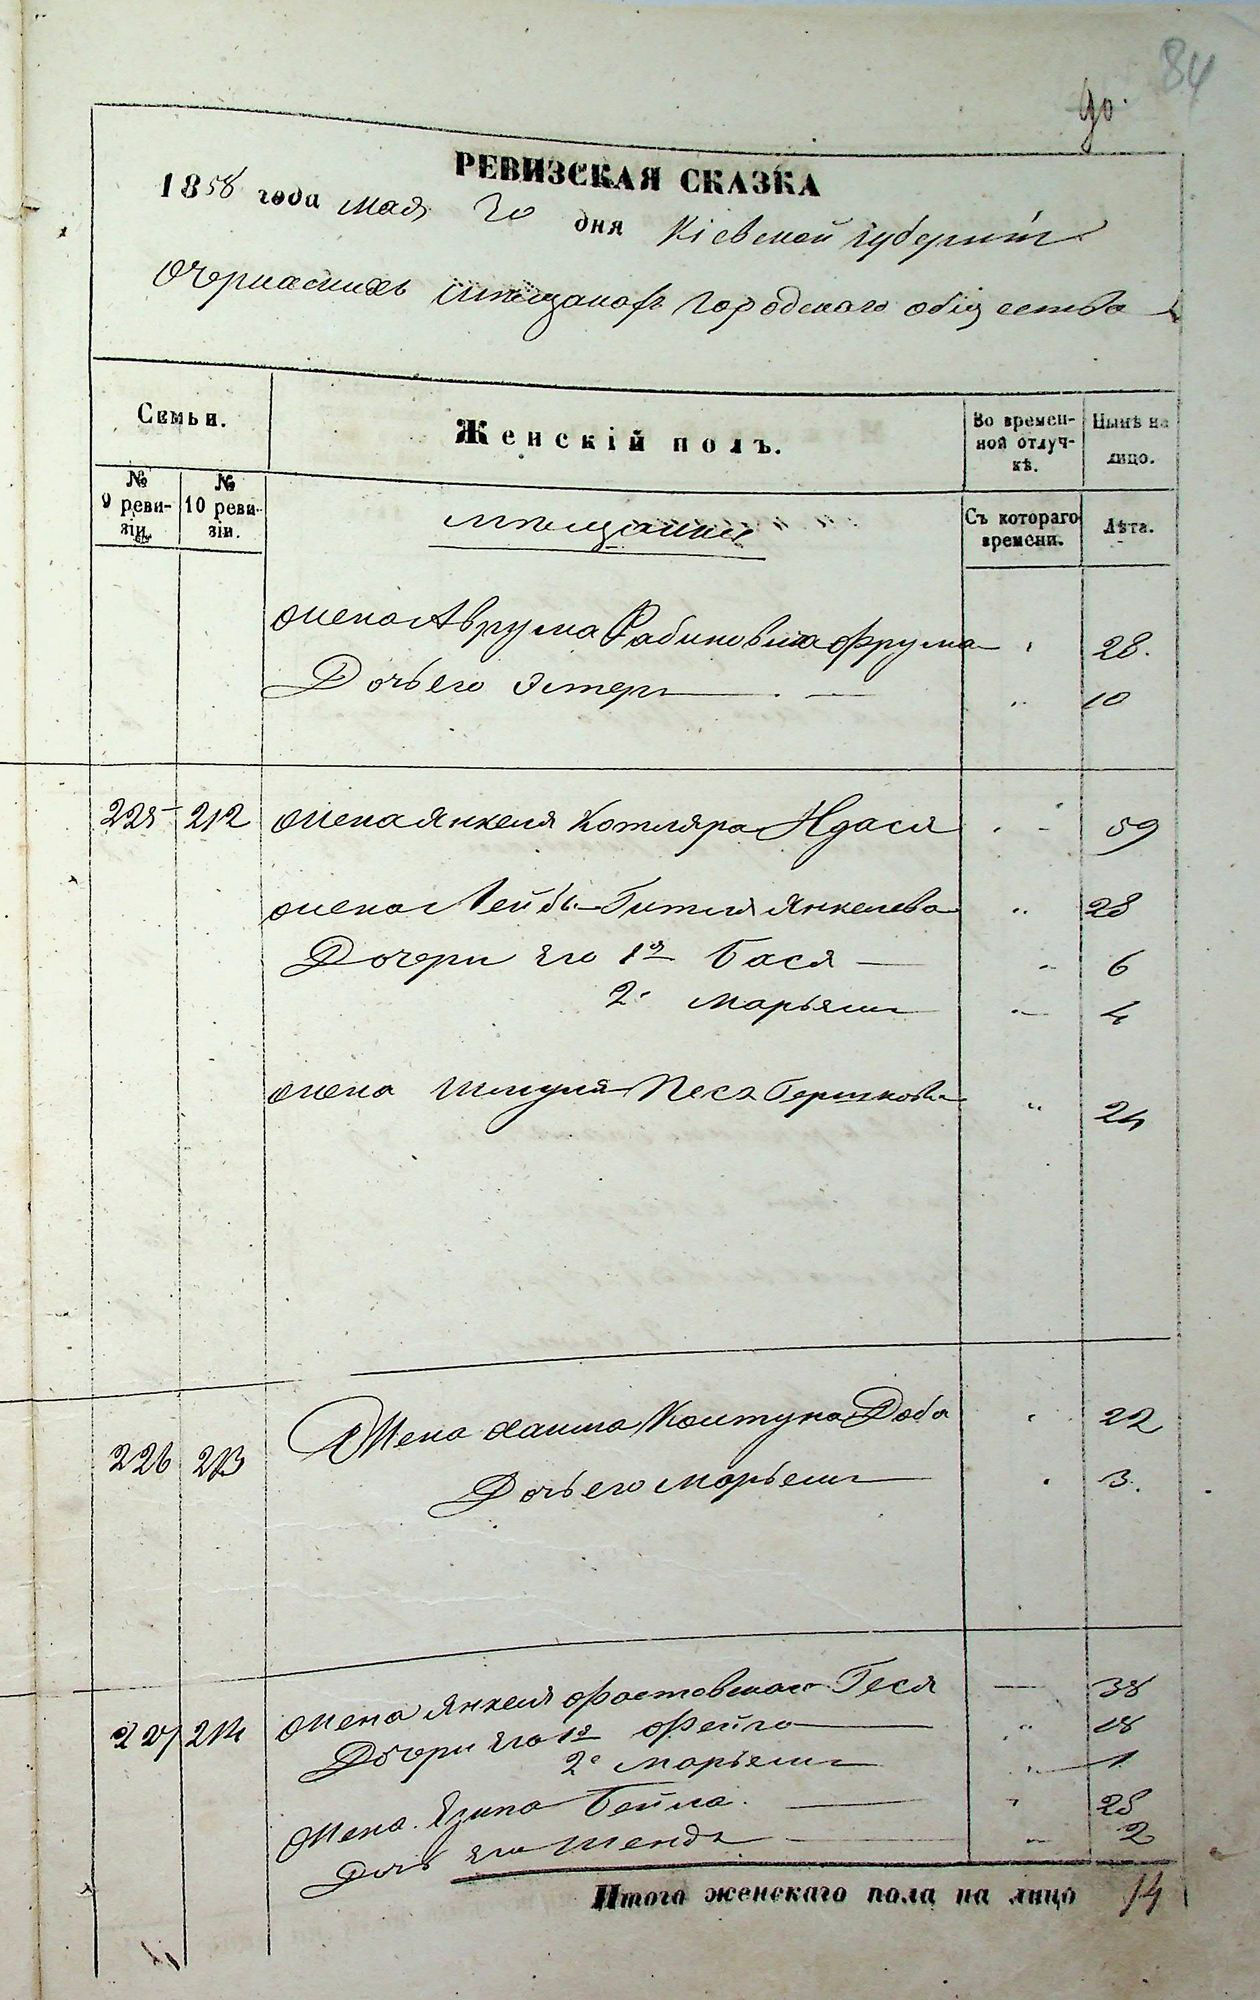 84
90.
РЕВИЗСКАЯ СКАЗКА
1858 года мая 30 дня Кіевской губерніи
О черкаскихъ мѣщанахъ городскаго общества
Семьи.
Женскій полъ.
Во времен-
ной отлуч-
кѣ.
Нынѣ на
лицо.
№
9 реви-
зіи.
№
10 реви-
зіи.
мѣщанки
Съ котораго
времени.
Лѣта.
Жена Аврума Рабиновича Фрума 28.
Дочь его Эстеръ 10
225 212 Жена Янкеля Котляра Идася 59
Жена Лейбы Гитля Янкелева 28
Дочери его 1я Бася 6
2. Марьямъ 4
Жена Шмуля Песя Гершкова 24
226 213 Жена Хаима Колтуна Доба 22
Дочь его Марьемъ 3.
227 214 Жена Янкеля Фастовскаго Геся 38
Дочери его 1я Фейга 18
2я Марьемъ 1
Жена Бейла 28
Дочь его Шендля 2
Итого женскаго пола на лицо 14